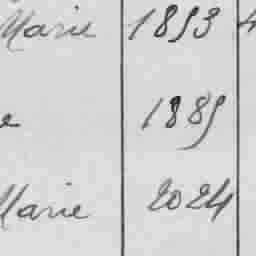 Marie 1853 4
e 1885
Marie 2024